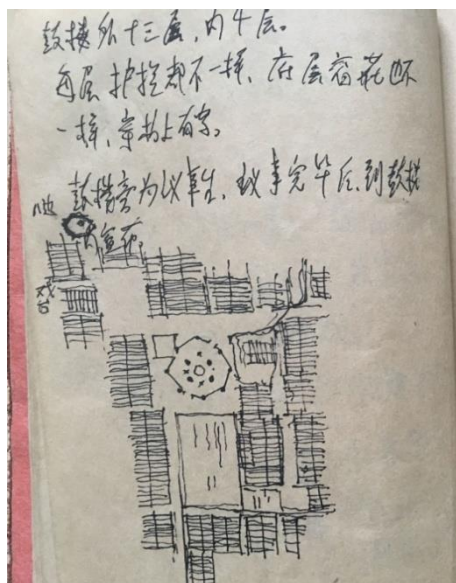 鼓楼外十三层，内4层。
每层护栏都不一样、底层窗花也不
一样，穿枋上有字。
鼓楼旁为议事台，议事完毕后，到鼓楼
戏台